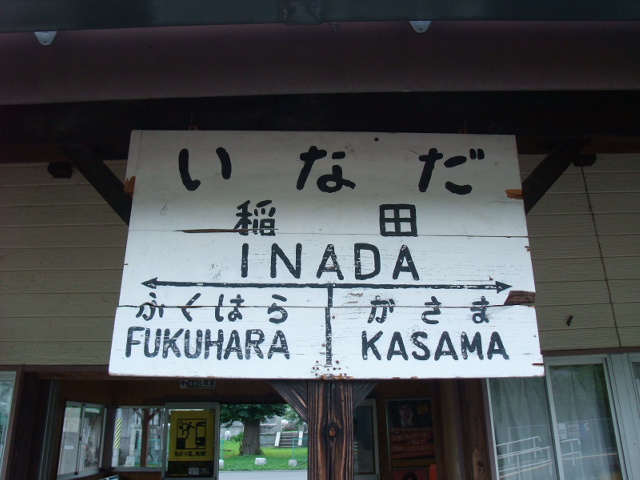 いなだ
稲田
INADA
ふくはら かさま
FUKUHARA KASAMA